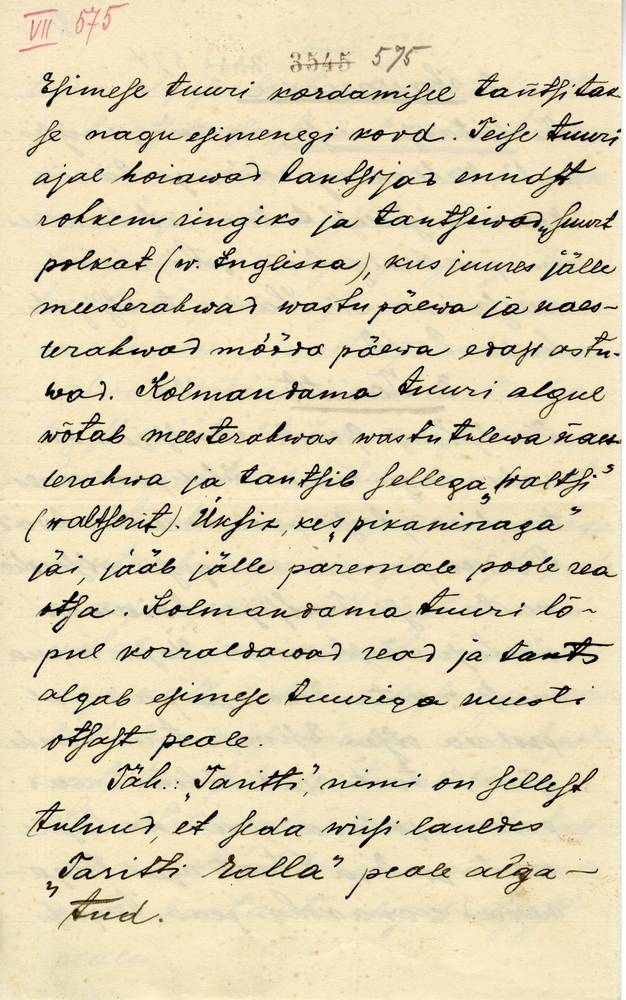 VII. 575
3545 575
Esimese tuuri kordamisel tantsitak-
se nagu esimenegi kord. Teise tuuri
ajal hoiawad tantsijad ennast
rohkem ringiks ja tantsiwad „suurt
polkat (w. Engliska), kus juures jälle
meesterahwad wastu päewa ja naes-
terahwad mööda päewa edasi astu-
wad. Kolmandama tuuri algul
wõtab meesterahwas wastu tulewa naes-
terahwa ja tantsib sellega „waltsi”
(waltserit). Üksik, kes „pikaninaga”
jäi, jääb jälle paremale poole rea
otsa. Kolmandama tuuri lõ-
pul korraldawad read ja tants
algab esimese tuuriga uuesti
otsast peale.
Täh.: „Taritti”, nimi on sellest
tulnud, et seda wiisi lauldes
„Taritti ralla” peale alga-
tud.